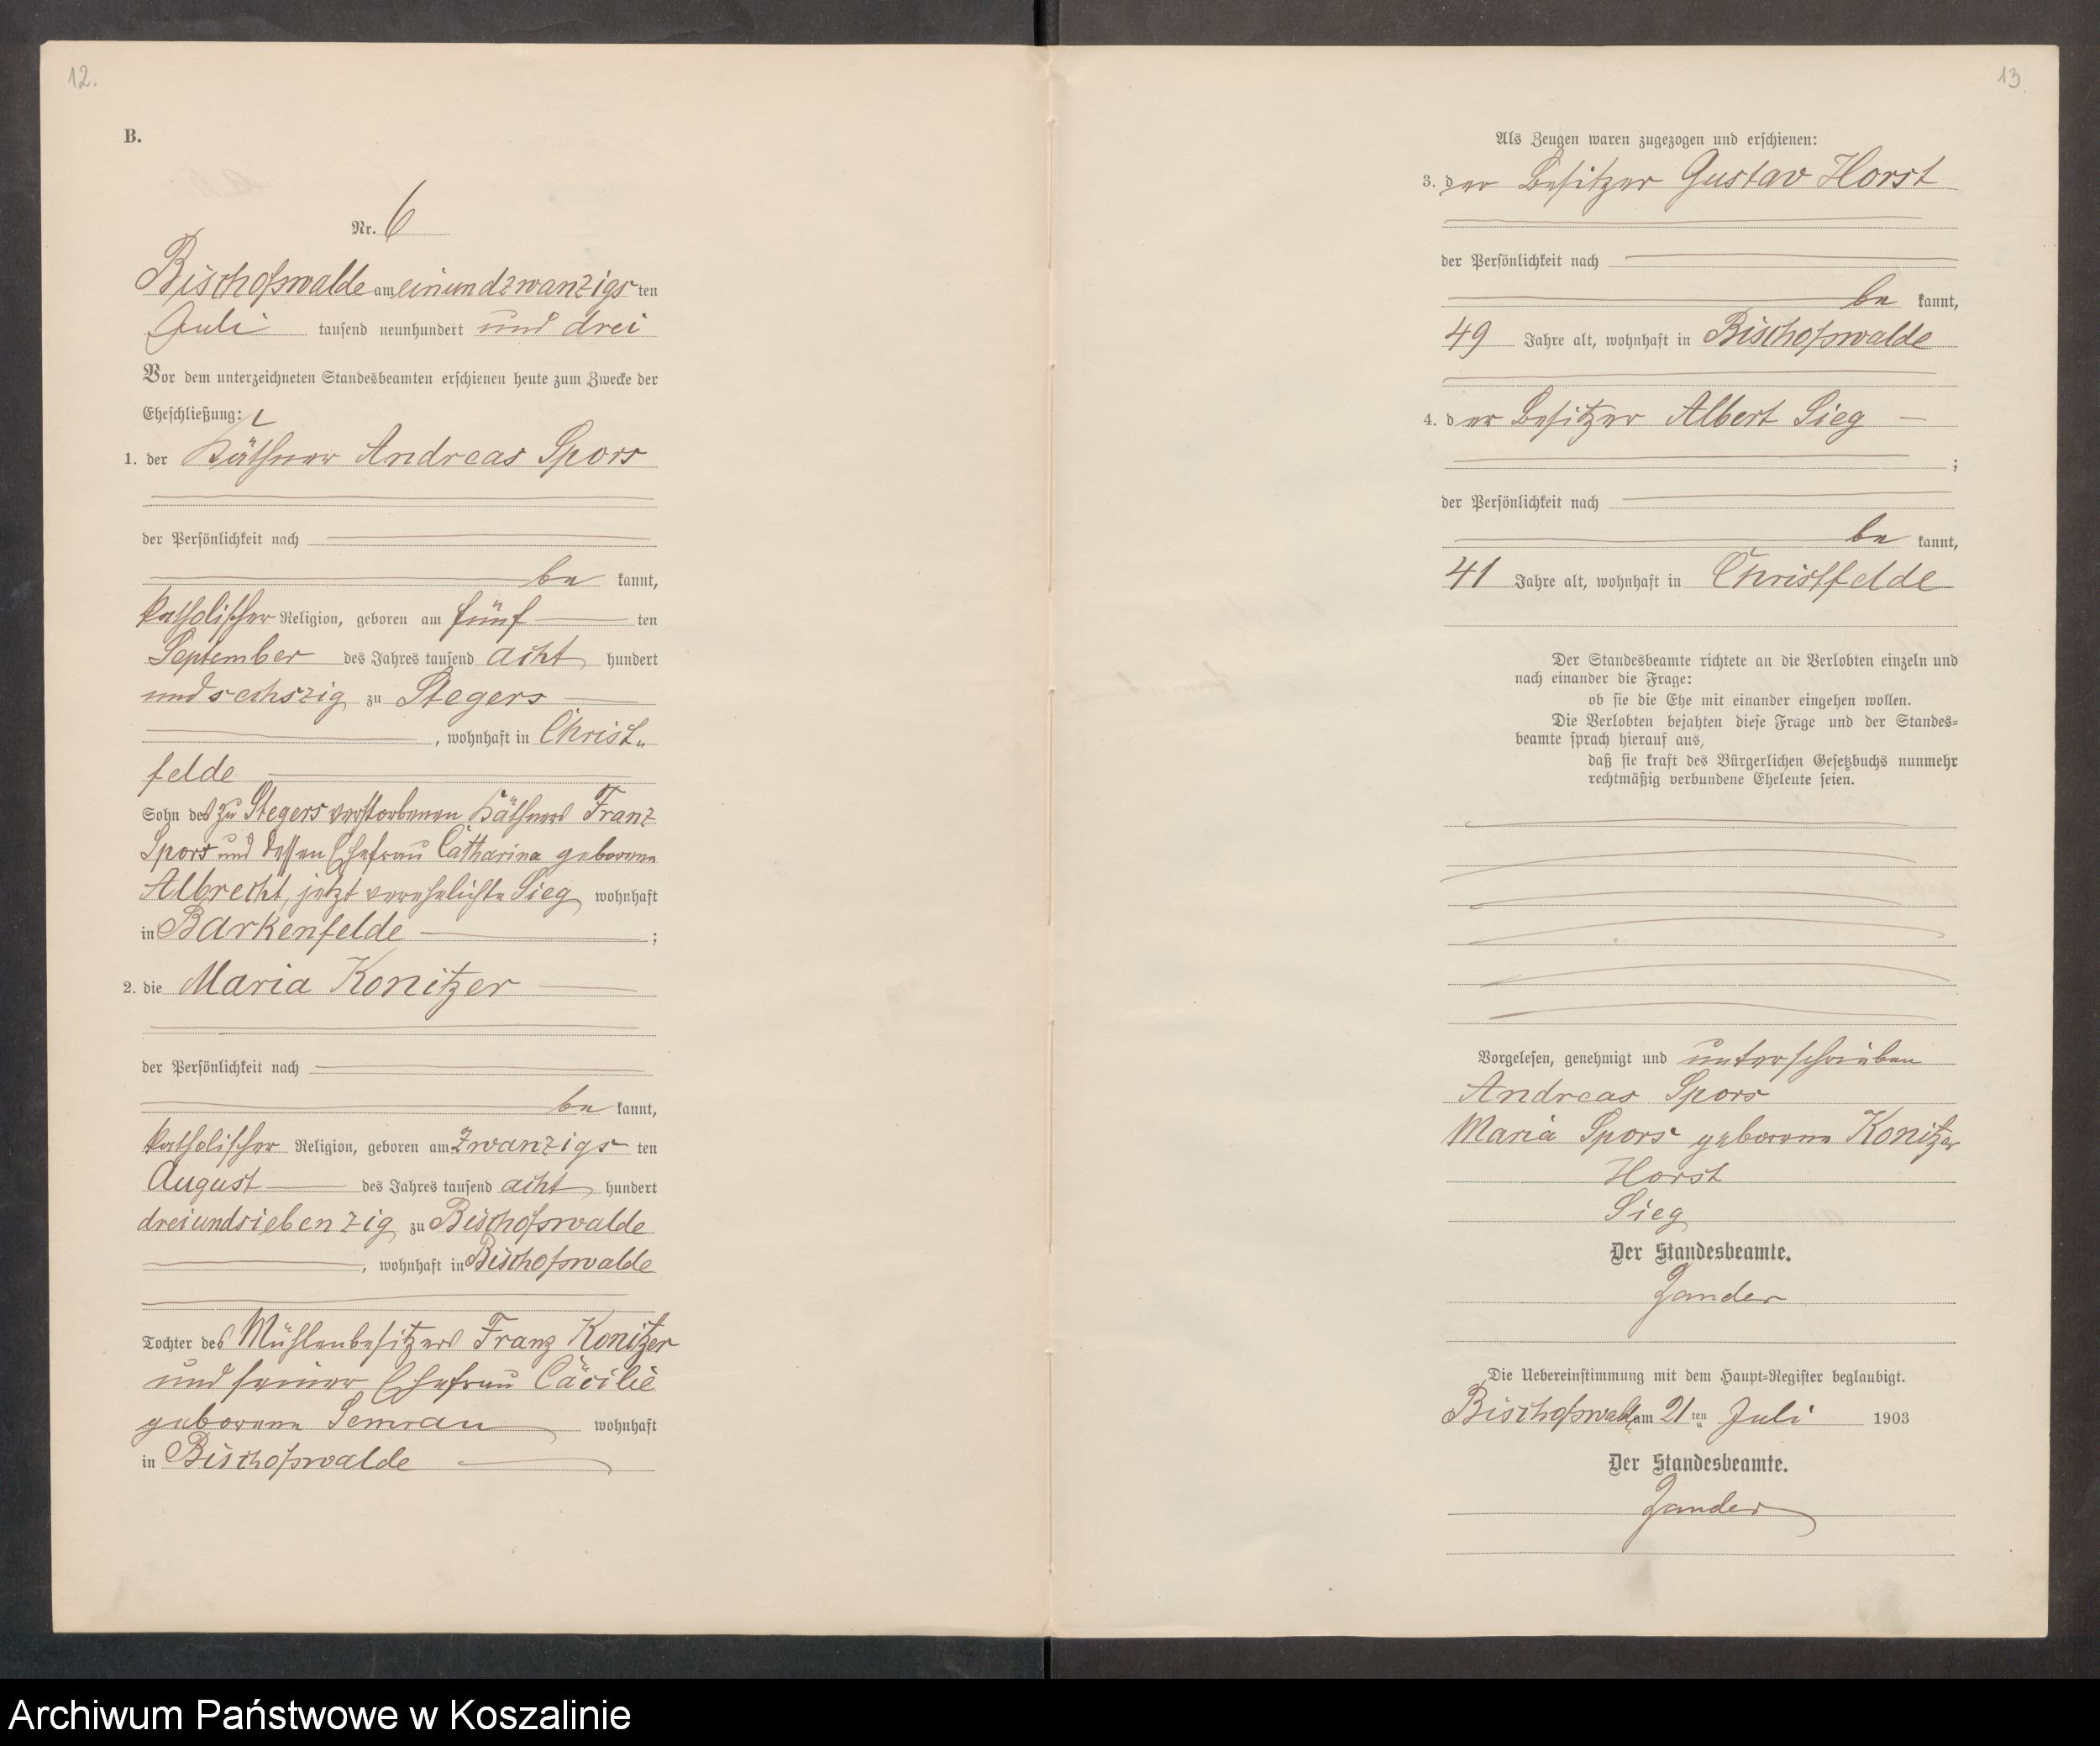 12.
B.
Nr. 6
Bischofswalde am einundzwanzigs ten
Juli tausend neunhundert und drei
Vor dem unterzeichneten Standesbeamten erschienen heute zum Zwecke der
Eheschließung:
1. der Käthner Andreas Spors
der Persönlichkeit nach
be kannt,
katholischer Religion, geboren am fünf ten
September des Jahres tausend acht hundert
und sechszig zu Stegers
, wohnhaft in Christ„
felde
Sohn des zu Stegers verstorbenen Käthners Franz
Spors und dessen Ehefrau Catharina geborene
Albrecht, jetzt verehelichte Sieg wohnhaft
in Barkenfelde ;
2. die Maria Konitzer
der Persönlichkeit nach
be kannt,
katholischer Religion, geboren am zwanzigs ten
August des Jahres tausend acht hundert
dreiundsiebenzig zu Bischofswalde
, wohnhaft in Bischofswalde
Tochter des Mühlenbesitzers Franz Konitzer
und seiner Ehefrau Cäcilie
geborene Semrau wohnhaft
in Bischofswalde
13
Als Zeugen waren zugezogen und erschienen:
3. der Besitzer Gustav Horst
der Persönlichkeit nach
be kannt,
49 Jahre alt, wohnhaft in Bischofswalde
4. der Besitzer Albert Sieg
;
der Persönlichkeit nach
be kannt,
41 Jahre alt, wohnhaft in Christfelde
Der Standesbeamte richtete an die Verlobten einzeln und
nach einander die Frage:
ob sie die Ehe mit einander eingehen wollen.
Die Verlobten bejahten diese Frage und der Standes-
beamte sprach hierauf aus,
daß sie kraft des Bürgerlichen Gesetzbuchs nunmehr
rechtmäßig verbundene Eheleute seien.
Vorgelesen, genehmigt und unterschrieben
Andreas Spors
Maria Spors geborene Konitzer
Horst
Sieg
Der Standesbeamte.
Zander
Die Uebereinstimmung mit dem Haupt-Register beglaubigt.
Bischofswalde am 21 ten Juli 1903
Der Standesbeamte.
Zander
Archiwum Państwowe w Koszalinie